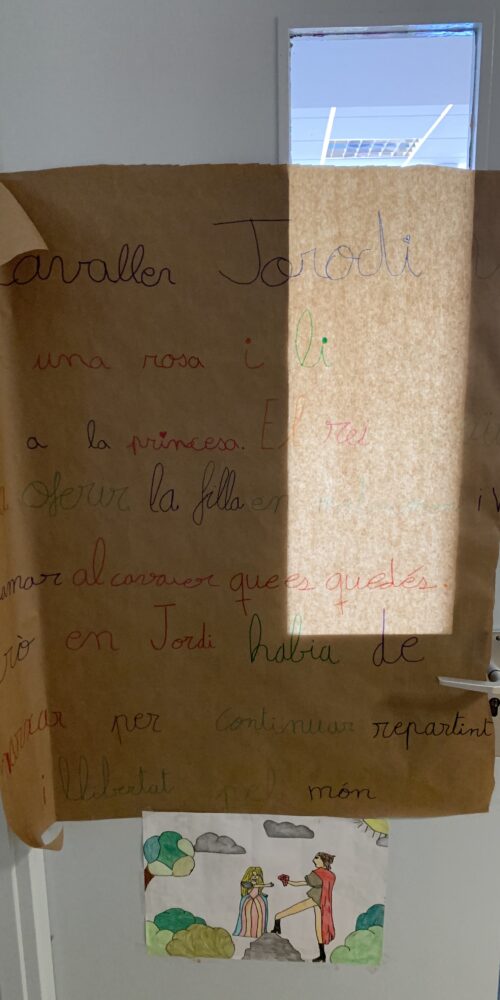 cavaller Jorodi
una rosa i li
a la princesa. El rei
oferir la filla en i
al cavaier que es quedés.
en Jordi habia de
per continuar repartint
i llibertat pel món